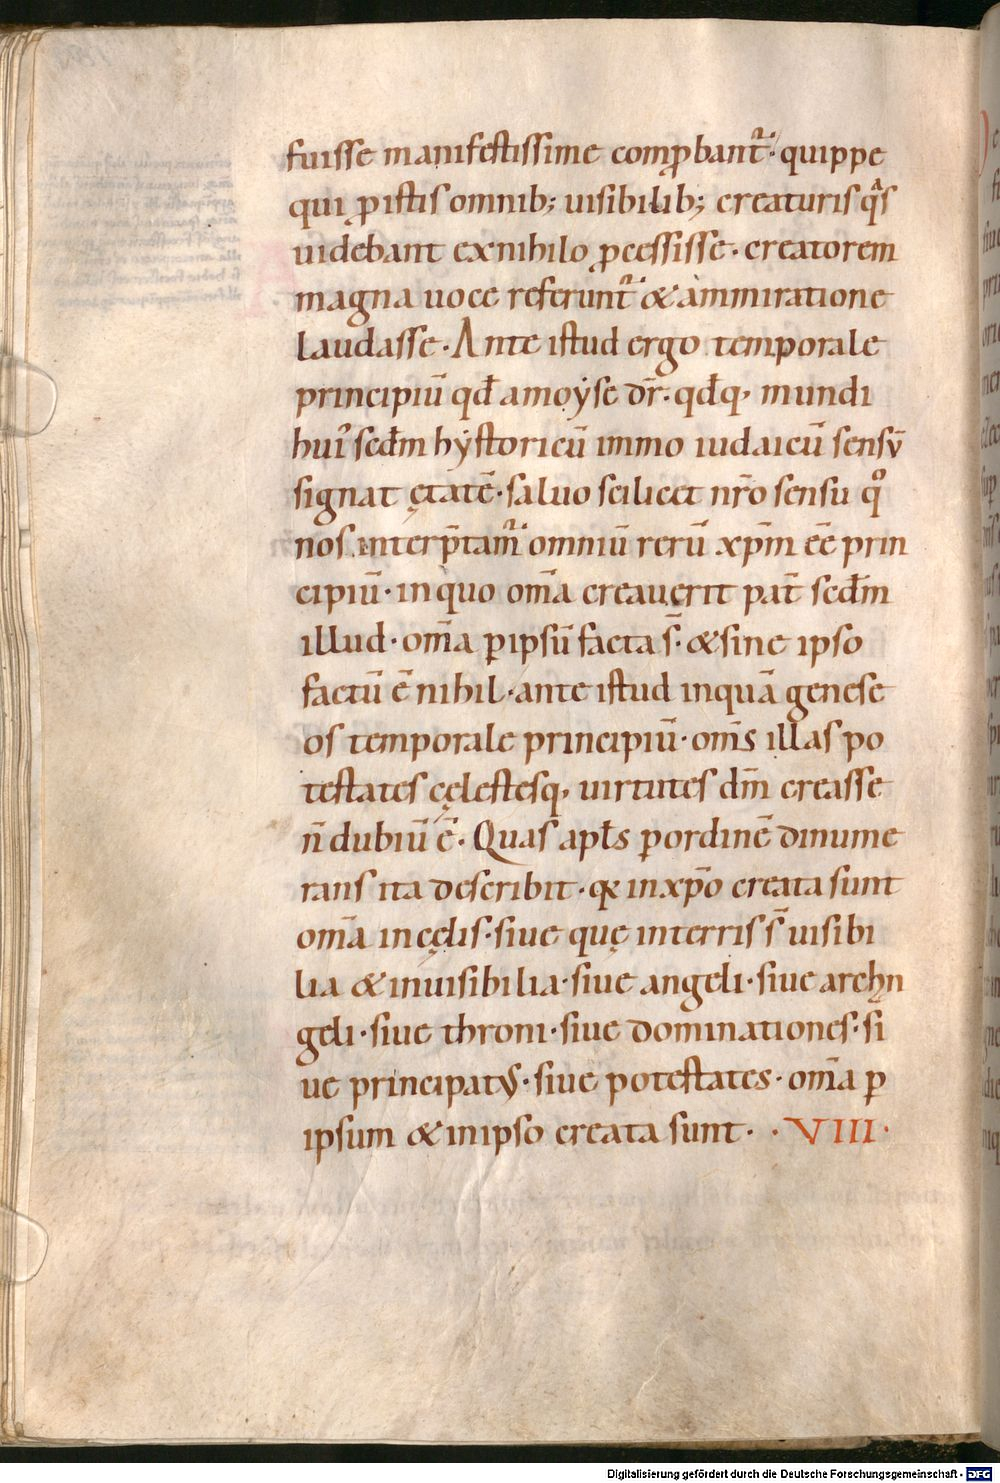 fuisse manifestissime cōꝓbant᷑· quippe
quę ꝓ istis omnib; uisibilib; creaturis qͣs
uidebant ex nihilo ꝓcessisse· creatorem
magna uoce referunt᷑ & ammiratione
laudasse· Ante istud ergo temporale
principiū qđ amoẏse dr̄· qđq, mundi
hui᷒ scđm hẏstoricū immo iudaicū sensū
signat ętatē· saluo scilicet nr̄o sensu qͦ
nos interp̄tam᷑ omniū rerū xp̄m eē prin
cipiū· in quo om̄a creauerit pat̄ scđm
illud· om̄a ꝑ ipsū facta s̄· & sine ipso
factū ē nihil· ante istud inquā genese
os temporale principiū· om̄s illas po
testates cęlestesq, uirtutes dm̄ creasse
n̄ dubiū ē· Quas apƚs ꝑ ordinē dinume
rans ita describit· qꝛ in xp̄o creata sunt
om̄a in cęlis· siue quę in terris s̄ uisibi
lia & inuisibilia· siue angeli· siue archn
geli· siue throni· siue dominationes· si
ue principatus· siue potestates· om̄a ꝑ
ipsum & in ipso creata sunt· ·VIII·
Digitalisierung gefördert durch die Deutsche Forschungsgemeinschaft - DFG